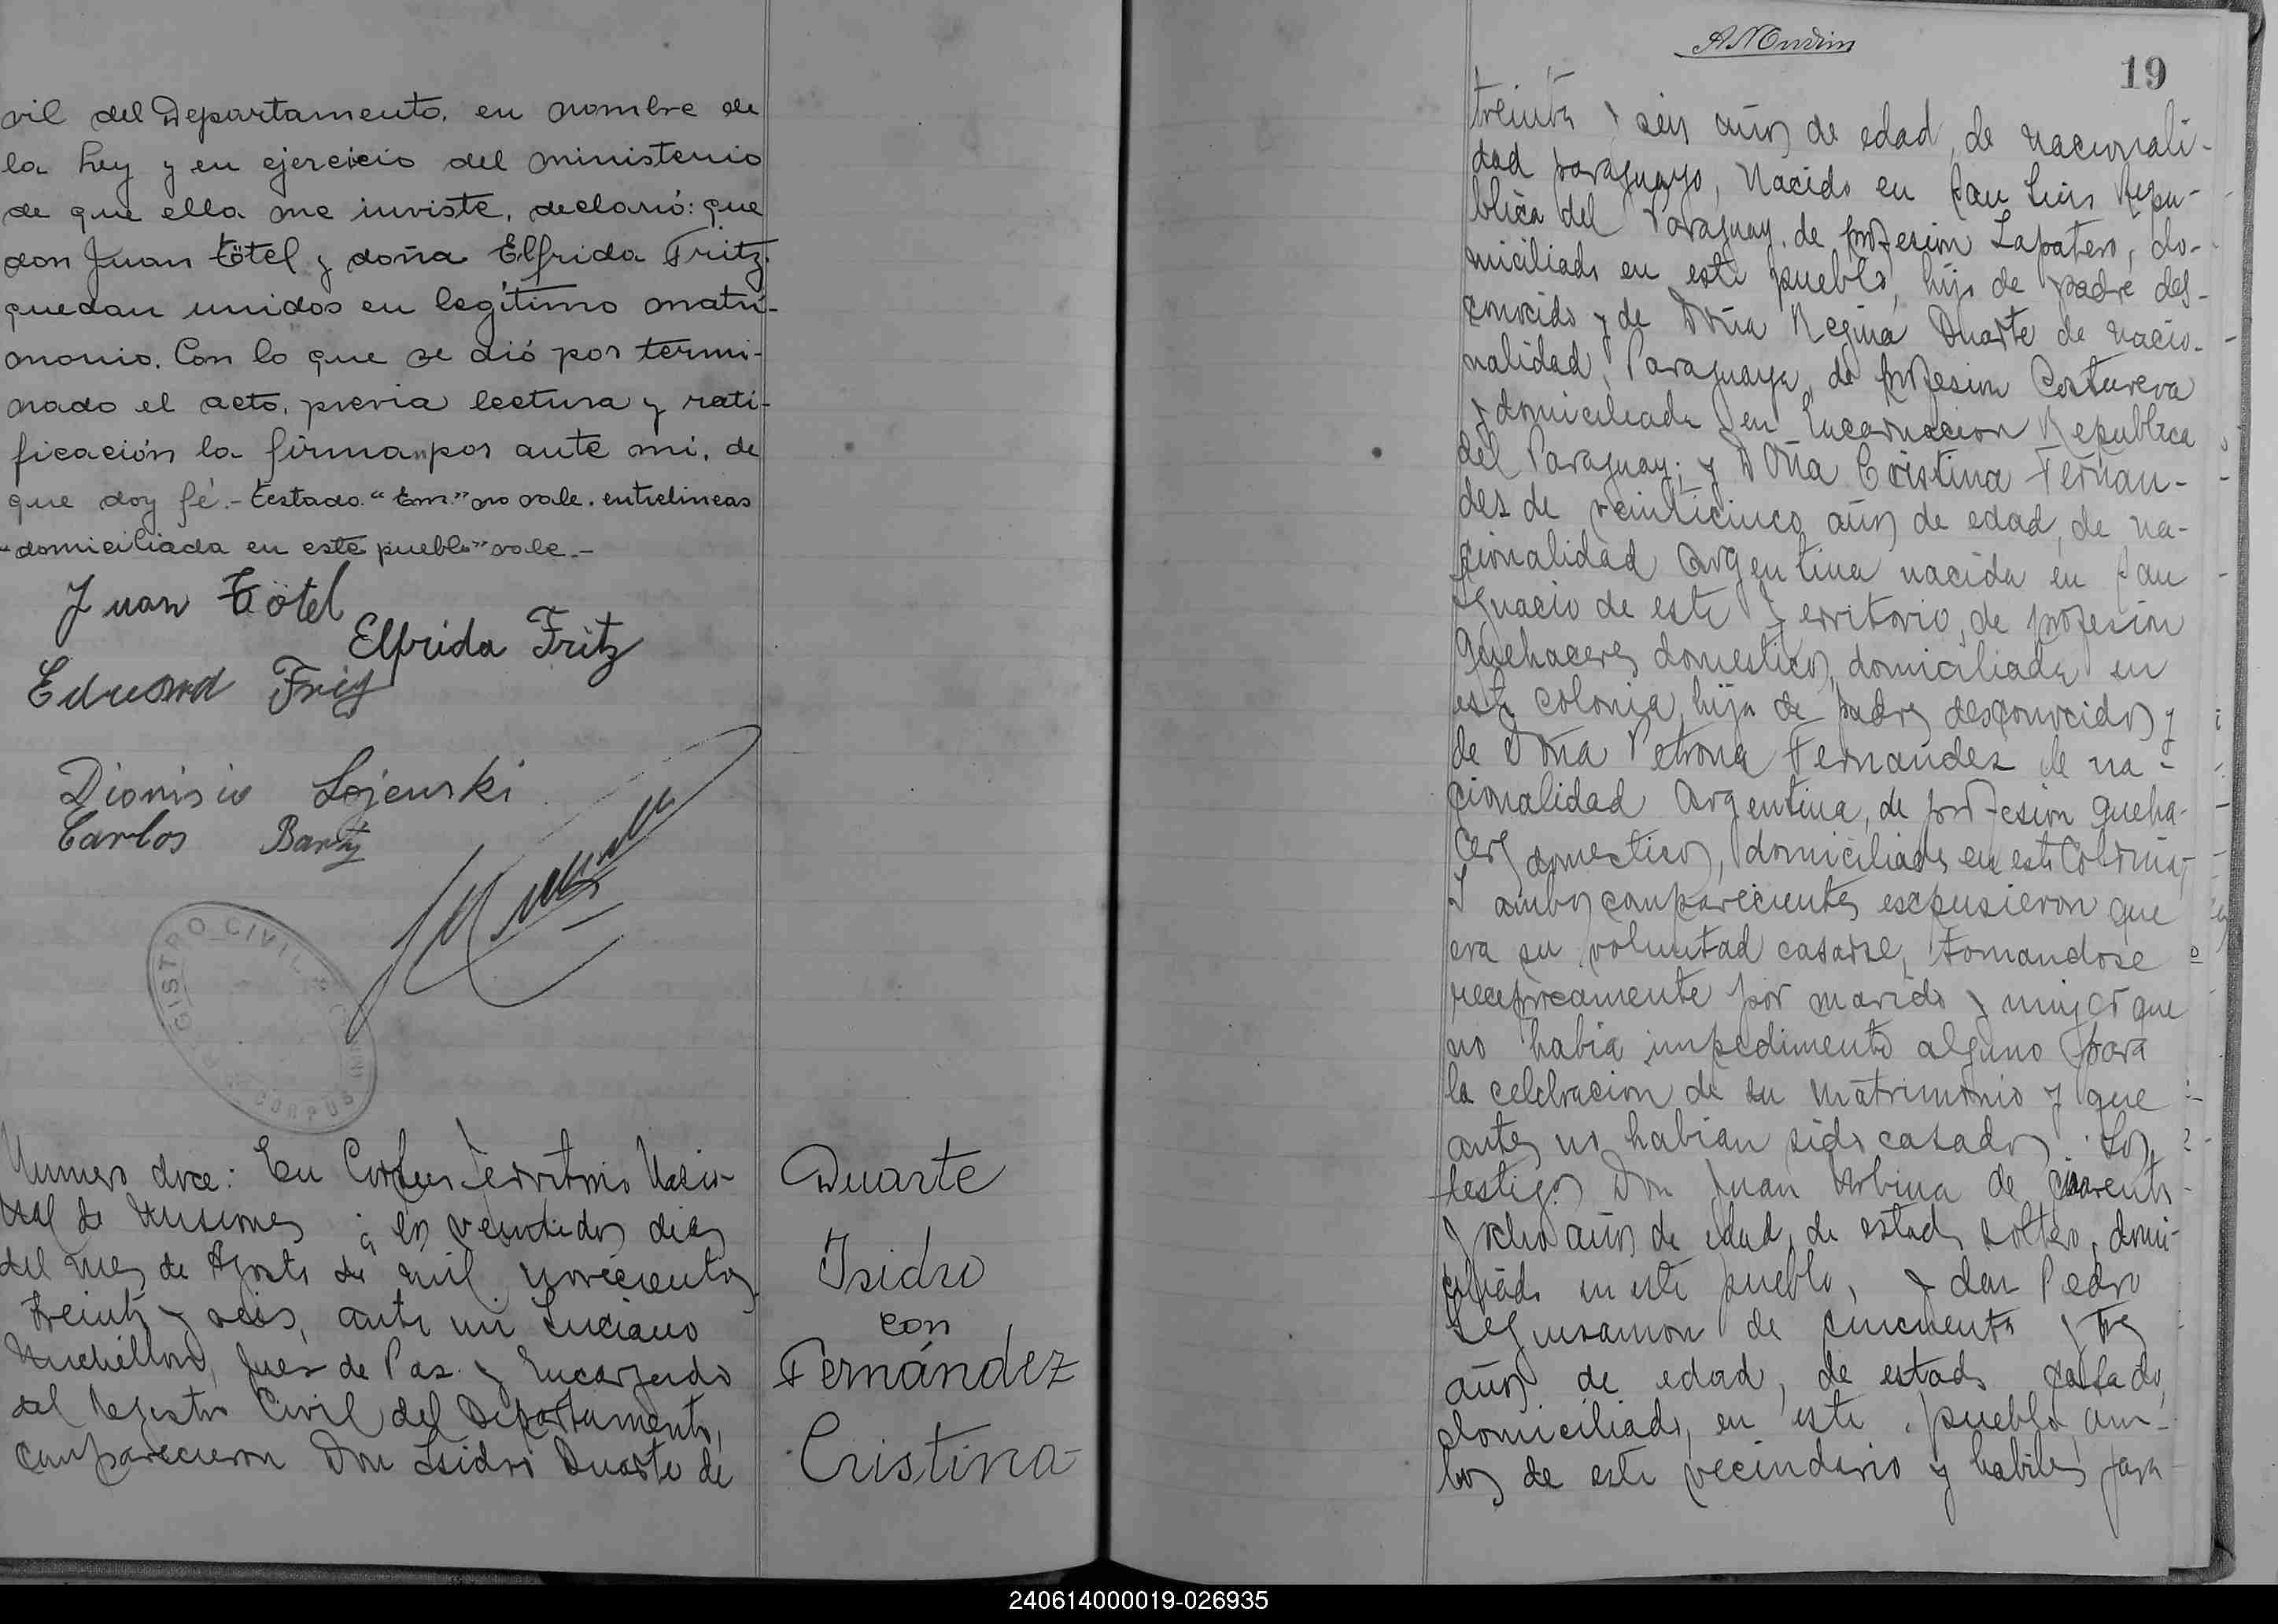 vil del Departamento, en nombre de
la Ley y en ejercicio del ministerio
de que ella me inviste, declaró: que
don Juan Götel y doña Elfrida Fritz
quedan unidos en legítimo matri-
monio. Con lo que se dió por termi-
nado el acto, previa lectura y rati-
ficación la firman por ante mi, de
que doy fé.- Testado "Em" no vale. entrelineas
"domiciliada en este pueblo" vale.-
Juan Götel
Elfrida Fritz
Eduard
Dionisio Lojewski
Carlos
REGISTRO CIVIL
CORPUS
Numero doce: En Corpus Territorio Nacio-
nal de Misiones á los veintidos dias
del mes de Agosto de mil novecientos
treinta y seis, ante mi Luciano
Juez de Paz y Encargado
del Registro Civil del Departamento,
comparecieron Don Isidro Duarte de
Duarte
Isidro
con
Fernández
Cristina
19
treinta y seis años de edad, de nacionali-
dad paraguayo, nacido en San Luis Repu-
blica del Paraguay, de profesion Zapatero, do-
miciliado en este pueblo, hijo de padre des-
conocido y de Doña Regina Duarte de nacio-
nalidad Paraguaya, de profesion Costurera
y domiciliada en Encarnacion Republica
del Paraguay; y Doña Cristina Fernan-
dez de veinticinco años de edad, de na-
cionalidad Argentina nacida en San
Ignacio de este Territorio, de profesion
quehaceres domesticos, domiciliada en
esta colonia, hija de padre desconocido y
de Doña Petrona Fernandez de na-
cionalidad Argentina, de profesion queha-
ceres domesticos, domiciliada en esta Colonia,
Y ambos comparecientes expusieron que
era su voluntad casarse, tomandose
reciprocamente por marido y mujer que
no habia impedimento alguno para
la celebracion de su matrimonio y que
antes no habian sido casados. Los
testigos Don Juan Urbina de cuarenta
y ocho años de edad, de estado soltero, domi-
ciliado en este pueblo, y don Pedro
de cincuenta y tres
años de edad, de estado casado,
domiciliado, en este pueblo, am-
bos de este vecindario y habiles para
240614000019-026935